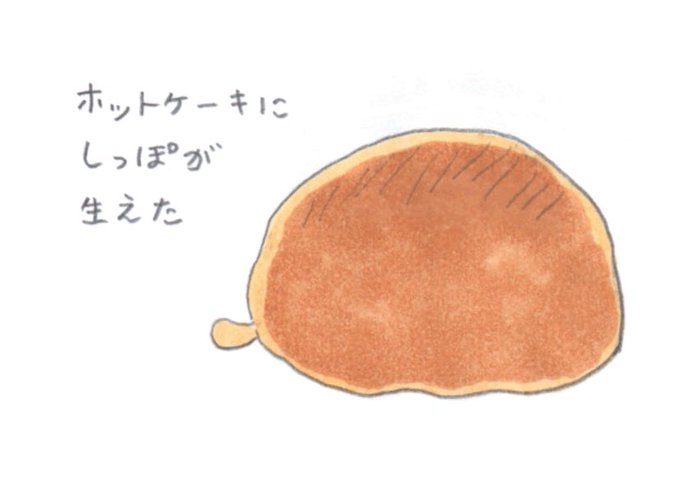 ホットケーキに
しっぽが
生えた